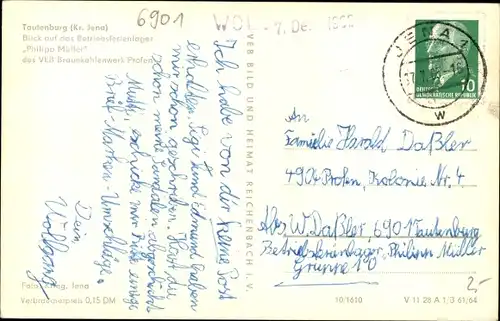 6901
Tautenburg (Kr. Jena)
Blick auf das Betriebsferienlager
„Philipp Müller"
des VEB Braunkohlenwerk Profen
WDL - 7. De
JENA 2
w
10
DEUTSCHE
DEMOKRATISCHE REPUBLIK
Ich habe von dir keine Post
erhalten. Sigi und Edmund haben
mir schon geschrieben. Hast du
schon meine Sandalen abgeschickt
Mutti, schicke mir bitte einige
Brief-Marken-Umschläge.
Dein
Wolfgang
Jena
Verbraucherpreis 0,15 DM
VEB BILD UND HEIMAT REICHENBACH I. V.
An
Familie Harald Daßler
4901 Profen, Kolonie Nr. 4
Abs. W. Daßler, 6901 Tautenburg
Betriebsferienlager, Philipp Müller
Gruppe 10
10/1610
V 11 28 A 1/B 61/64
2,-